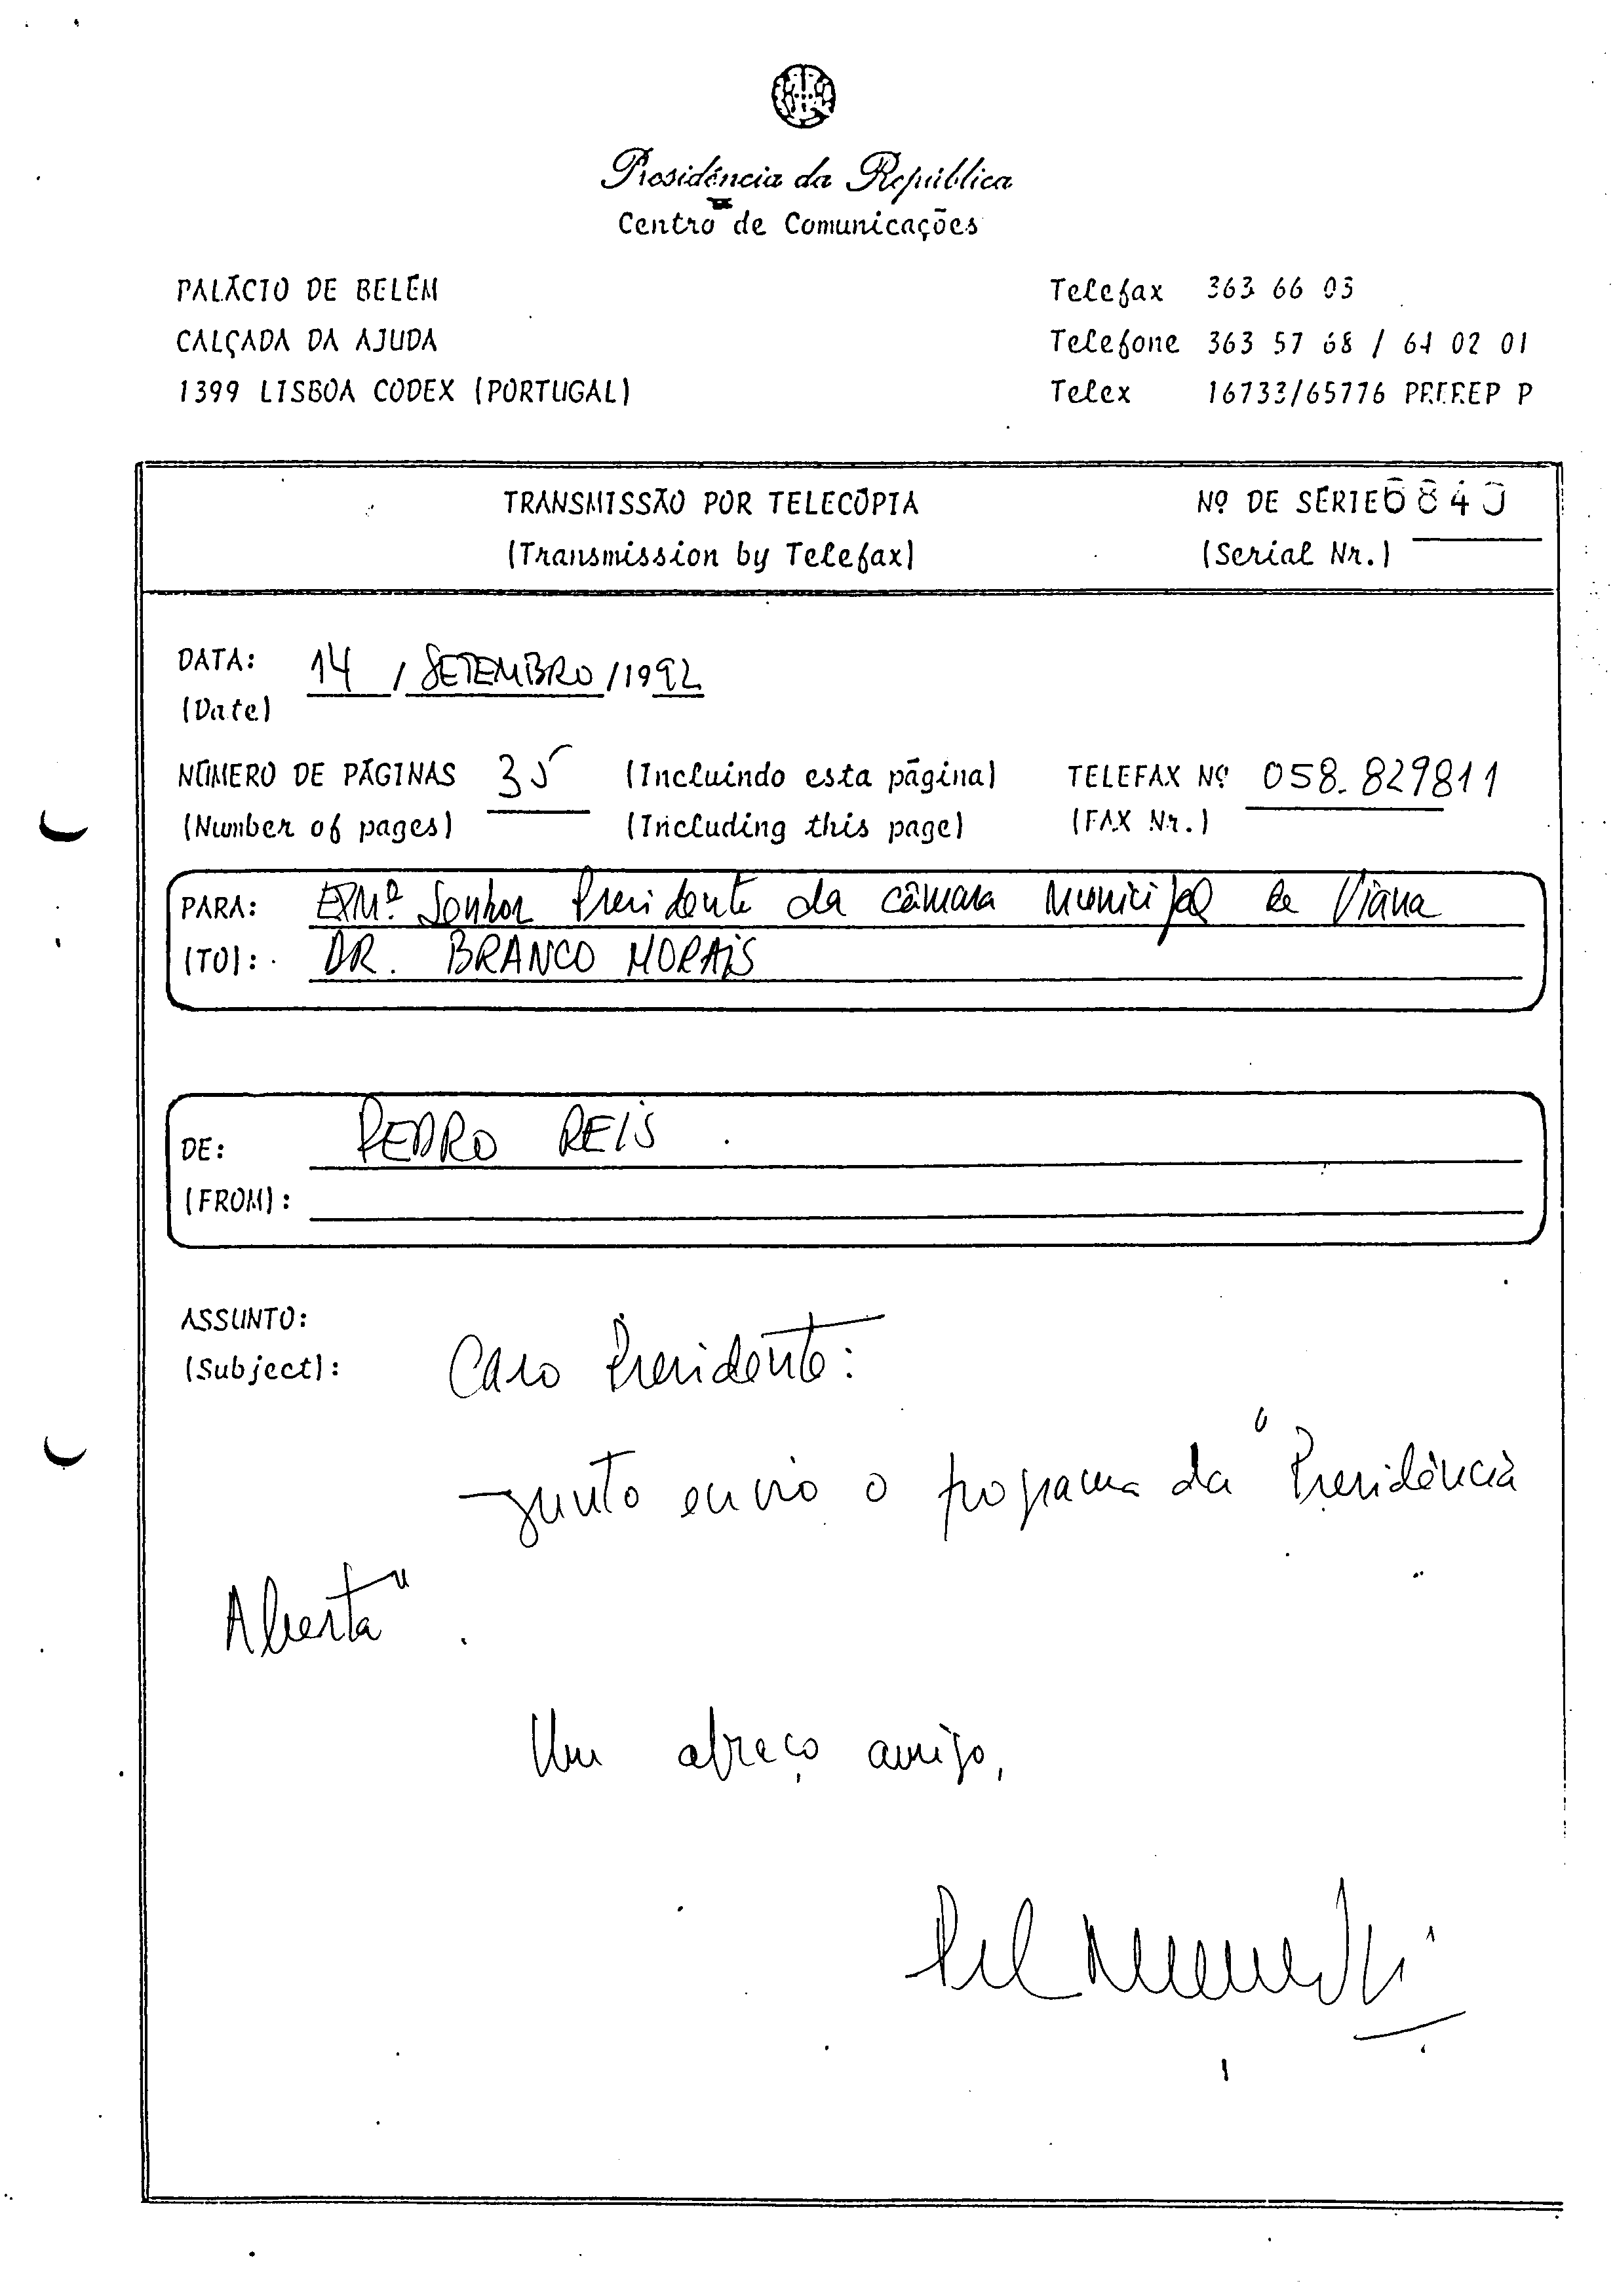 Presidência da República
Centro de Comunicações
PALÁCIO DE BELÉM
CALÇADA DA AJUDA
1399 LISBOA CODEX (PORTUGAL)
Telefax 363 66 03
Telefone 363 57 68 / 64 02 01
Telex 16733/65776 P
TRANSMISSÃO POR TELECÓPIA
(Transmission by Telefax)
Nº DE SÉRIE
(Serial Nr.)
DATA: 14 / SETEMBRO / 1992
(Date)
NÚMERO DE PÁGINAS 35 (Incluindo esta página) TELEFAX Nº 058-829811
(Number of pages) (Including this page) (FAX Nr.)
PARA: EXMº Senhor Presidente da Câmara Municipal de Viana
(TO): DR. BRANCO MORAIS
DE: PEDRO REIS
(FROM):
ASSUNTO:
(Subject): Caro Presidente:
Junto envio o programa da "Presidência
Aberta".
Um abraço amigo,